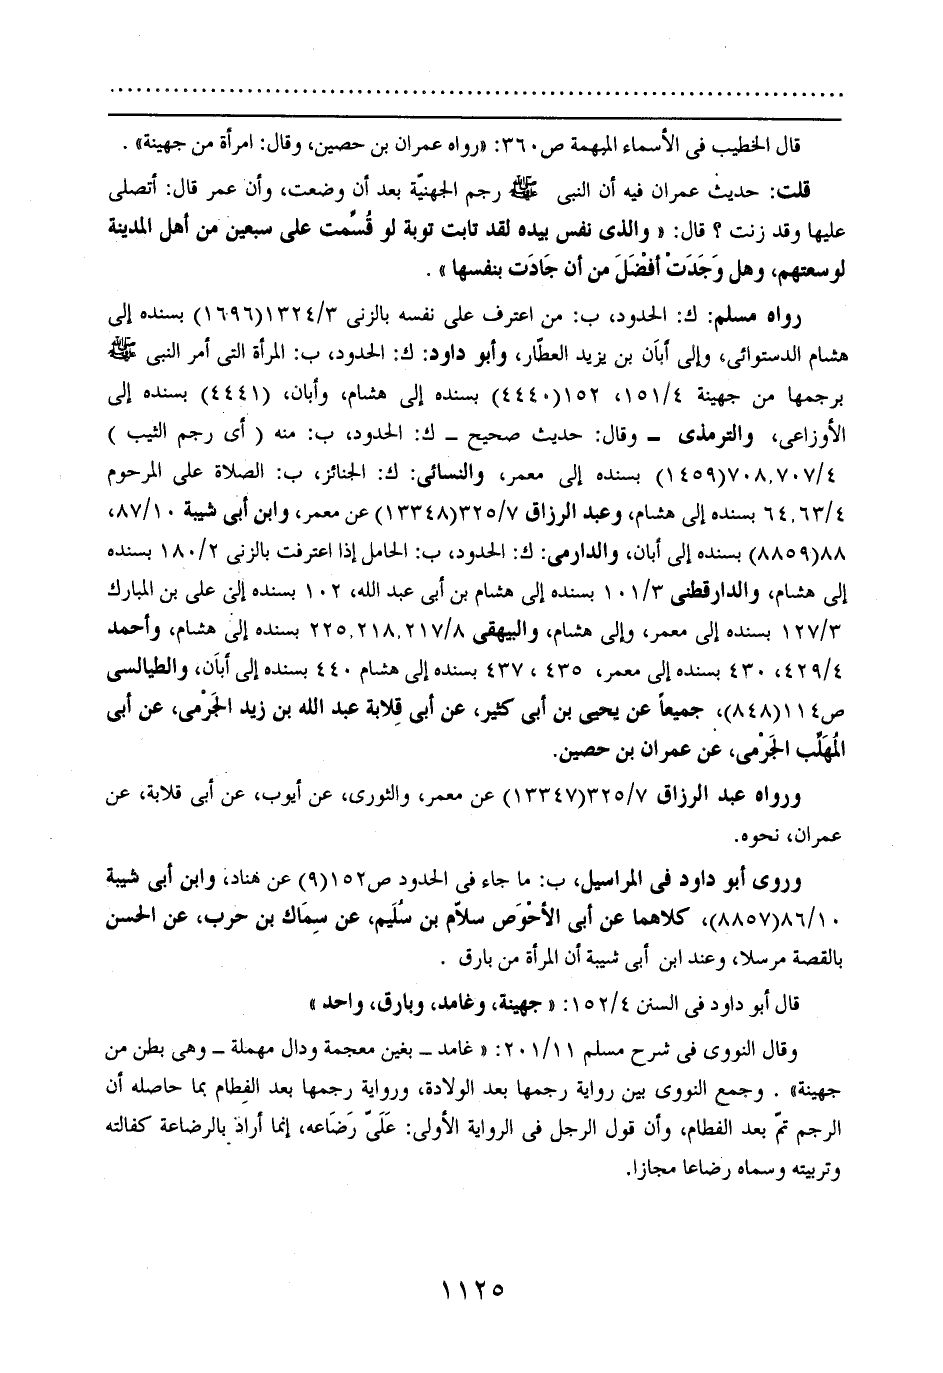 قال الخطيب فى الأسماء المبهمة ص٣٦٠: «رواه عمران بن حصين، وقال: امرأة من جهينة» .
قلت: حديث عمران فيه أن النبى ﷺ رجم الجهنيّة بعد أن وضعت، وأن عمر قال: أتصلى
عليها وقد زنت ؟ قال: « والذى نفس بيده لقد تابت توبة لو قُسِّمت على سبعين من أهل المدينة
لوسعتهم، وهل وَجَدَتْ أفضَلَ من أن جَادَت بنفسها » .
رواه مسلم: ك: الحدود، ب: من اعترف على نفسه بالزنى ١٣٢٤/٣(١٦٩٦) بسنده إلى
هشام الدستوائى، وإلى أبَان بن يزيد العطّار، وأبو داود: ك: الحدود، ب: المرأة التى أمر النبى ﷺ
برجمها من جهينة ١٥١/٤، ١٥٢(٤٤٤٠) بسنده إلى هشام، وأبان، (٤٤٤١) بسنده إلى
الأوزاعى، والترمذى ـ وقال: حديث صحيح ـ ك: الحدود، ب: منه ( أى رجم الثيب )
٧٠٨,٧٠٧/٤(١٤٥٩) بسنده إلى معمر، والنسائى: ك: الجنائز، ب: الصلاة على المرحوم
٦٤,٦٣/٤ بسنده إلى هشام، وعبد الرزاق ٣٢٥/٧(١٣٣٤٨) عن معمر، وابن أبى شيبة ٨٧/١٠،
٨٨(٨٨٥٩) بسنده إلى أبان، والدارمى: ك: الحدود، ب: الحامل إذا اعترفت بالزنى ١٨٠/٢ بسنده
إلى هشام، والدارقطنى ١٠١/٣ بسنده إلى هشام بن أبى عبد الله، ١٠٢ بسنده إلى على بن المبارك
١٢٧/٣ بسنده إلى معمر، وإلى هشام، والبيهقى ٢٢٥,٢١٨,٢١٧/٨ بسنده إلى هشام، وأحمد
٤٢٩/٤، ٤٣٠ بسنده إلى معمر، ٤٣٥ ، ٤٣٧ بسنده إلى هشام ٤٤٠ بسنده إلى أبَان، والطيالسى
ص١١٤(٨٤٨)، جميعاً عن يحيى بن أبى كثير، عن أبى قِلابة عبد الله بن زيد الجَرْمى، عن أبى
المُهَلَّب الجَرْمى، عن عمران بن حصين.
ورواه عبد الرزاق ٣٢٥/٧(١٣٣٤٧) عن معمر، والثورى، عن أيوب، عن أبى قلابة، عن
عمران، نحوه.
وروى أبو داود فى المراسيل، ب: ما جاء فى الحدود ص١٥٢(٩) عن هناد، وابن أبى شيبة
٨٦/١٠(٨٨٥٧)، كلاهما عن أبى الأحْوَص سلاّم بن سُلَيم، عن سِمَاك بن حرب، عن الحسن
بالقصة مرسلا، وعند ابن أبى شيبة أن المرأة من بارق .
قال أبو داود فى السنن ١٥٢/٤: « جهينة، وغامد، وبارق، واحد »
وقال النووى فى شرح مسلم ٢٠١/١١: « غامد ـ بغين معجمة ودال مهملة ـ وهى بطن من
جهينة» . وجمع النووى بين رواية رجمها بعد الولادة، ورواية رجمها بعد الفِطام بما حاصله أن
الرجم تمّ بعد الفطام، وأن قول الرجل فى الرواية الأولى: عَلَىّ رَضَاعه، إنما أراد بالرضاعة كفالته
وتربيته وسماه رضاعا مجازا.
١١٢٥